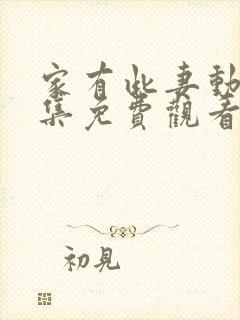 家有此妻動
集免費觀看
初見